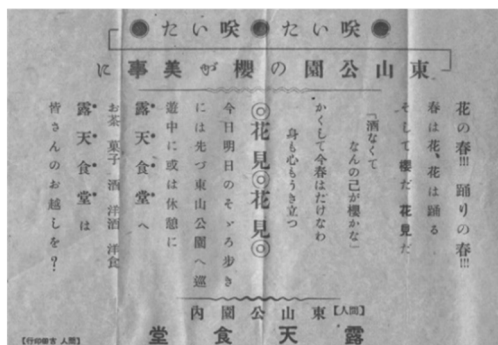 ●咲いた●咲いた●
東山公園の櫻が美事に
花の春!!! 踊りの春!!!
春は花、花は踊る
そして櫻だ 花見だ
「酒なくて
なんの己が櫻かな」
かくして今春はたけなわ
身も心もうき立つ
◎花見◎花見◎
今日明日のそゞろ歩き
には先づ東山公園へ巡
遊中に或は休憩に
露天食堂へ
お茶 菓子 酒 洋酒 洋食
露天食堂は
皆さんのお越しを?
【間人】東山公園內
露天食堂
【間人 印行】